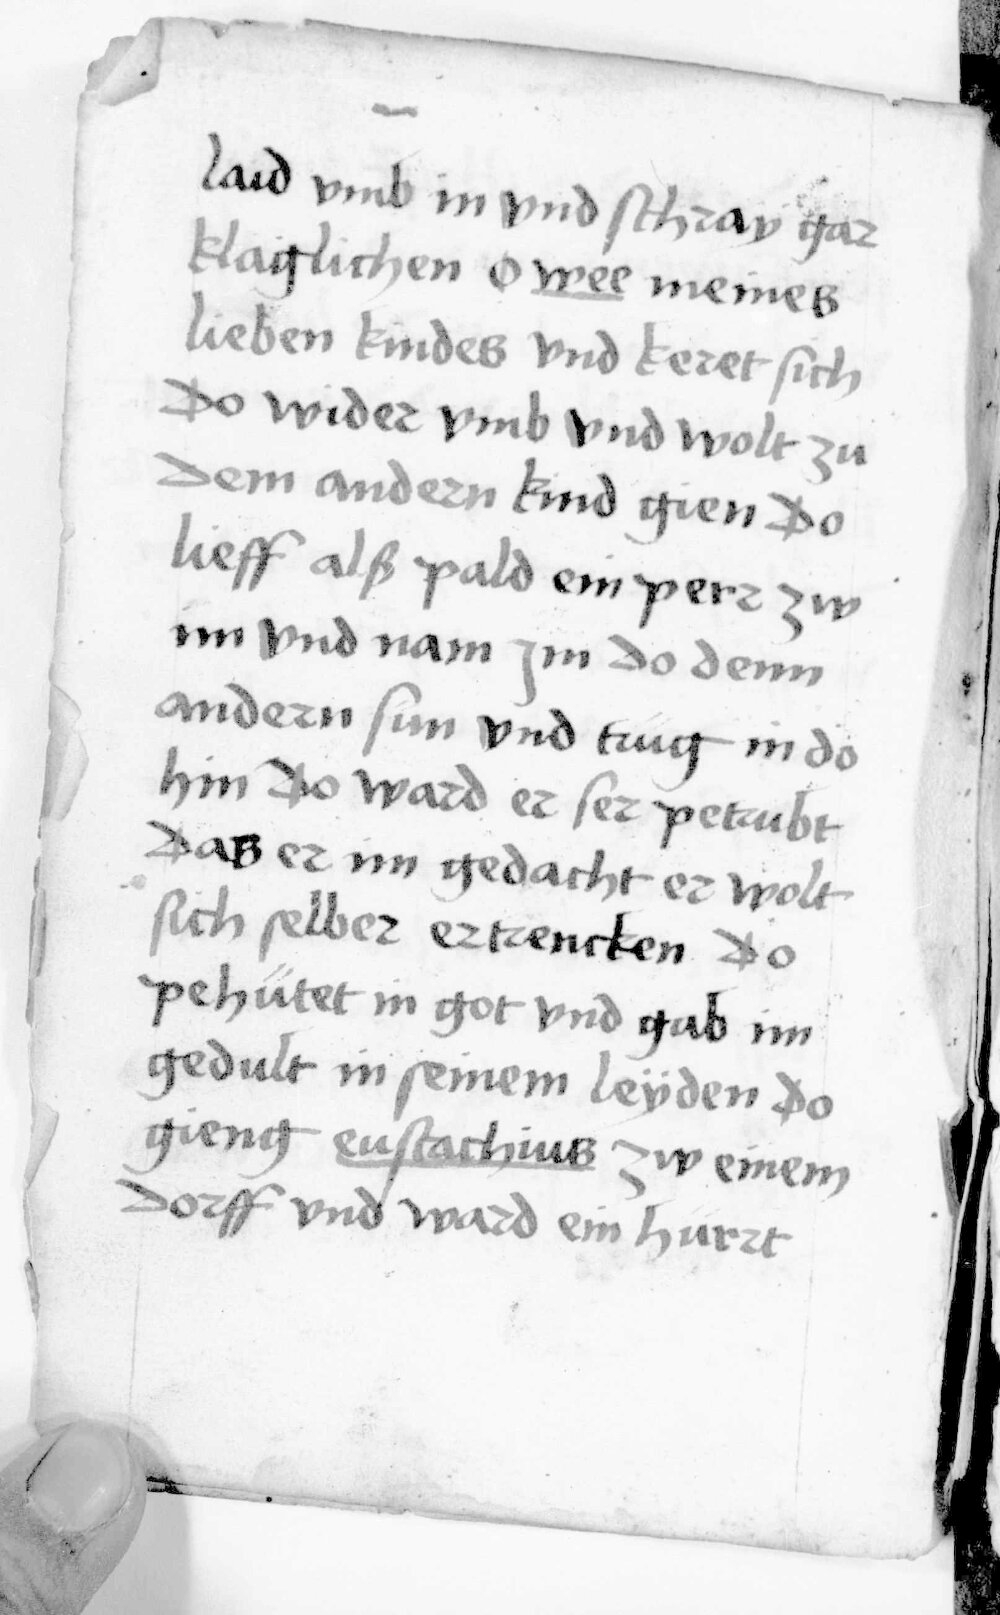 laid vmb in vnd schray gar
klaglichen O wee meines
lieben kindes vnd keret sich
Do wider vmb vnd wolt zu
Dem andern kind gien Do
lieff alß pald ein perr zw
im vnd nam Im Do denn
andern sun vnd trug in do
hin Do ward er ser petrubt
Das er im gedacht er wolt
sich selber ertrencken Do
pehütet in got vnd gab im
gedult in seinem leyden Do
gieng eustachius zw einem
Dorff vnd ward ein hurrt